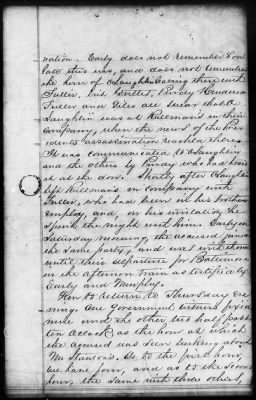 nation. Early does not remember how
late this was, and does not remember
the hour of O'Laughlin being there with
Fuller, but Grillet, Purdy, Henderson
Fuller and Giles all swear that O
Laughlin was at Rullman's in their
Company, when the news of the Pres
ident's assassination reached there.
It was communicated to O'Laughlin
and the others by Purdy who had heard
it at the door. Shortly after O'Laughlin
left Rullman's in company with
Fuller, who had been in his brothers
employ, and, on his invitation he
spent the night with him. Early on
Saturday morning, the accused joined
the same party, and was with them
until their departure for Baltimore
in the afternoon train as testified by
Early and Murphy.
Now to return to Thursday eve
ning. One Government witness fixes
nine and the other two half past
ten o'clock, as the hour at which
the accused was seen lurking about
Mr Stanton's. As to the first hour,
we have four, and as to the second
hour, the same with three others,